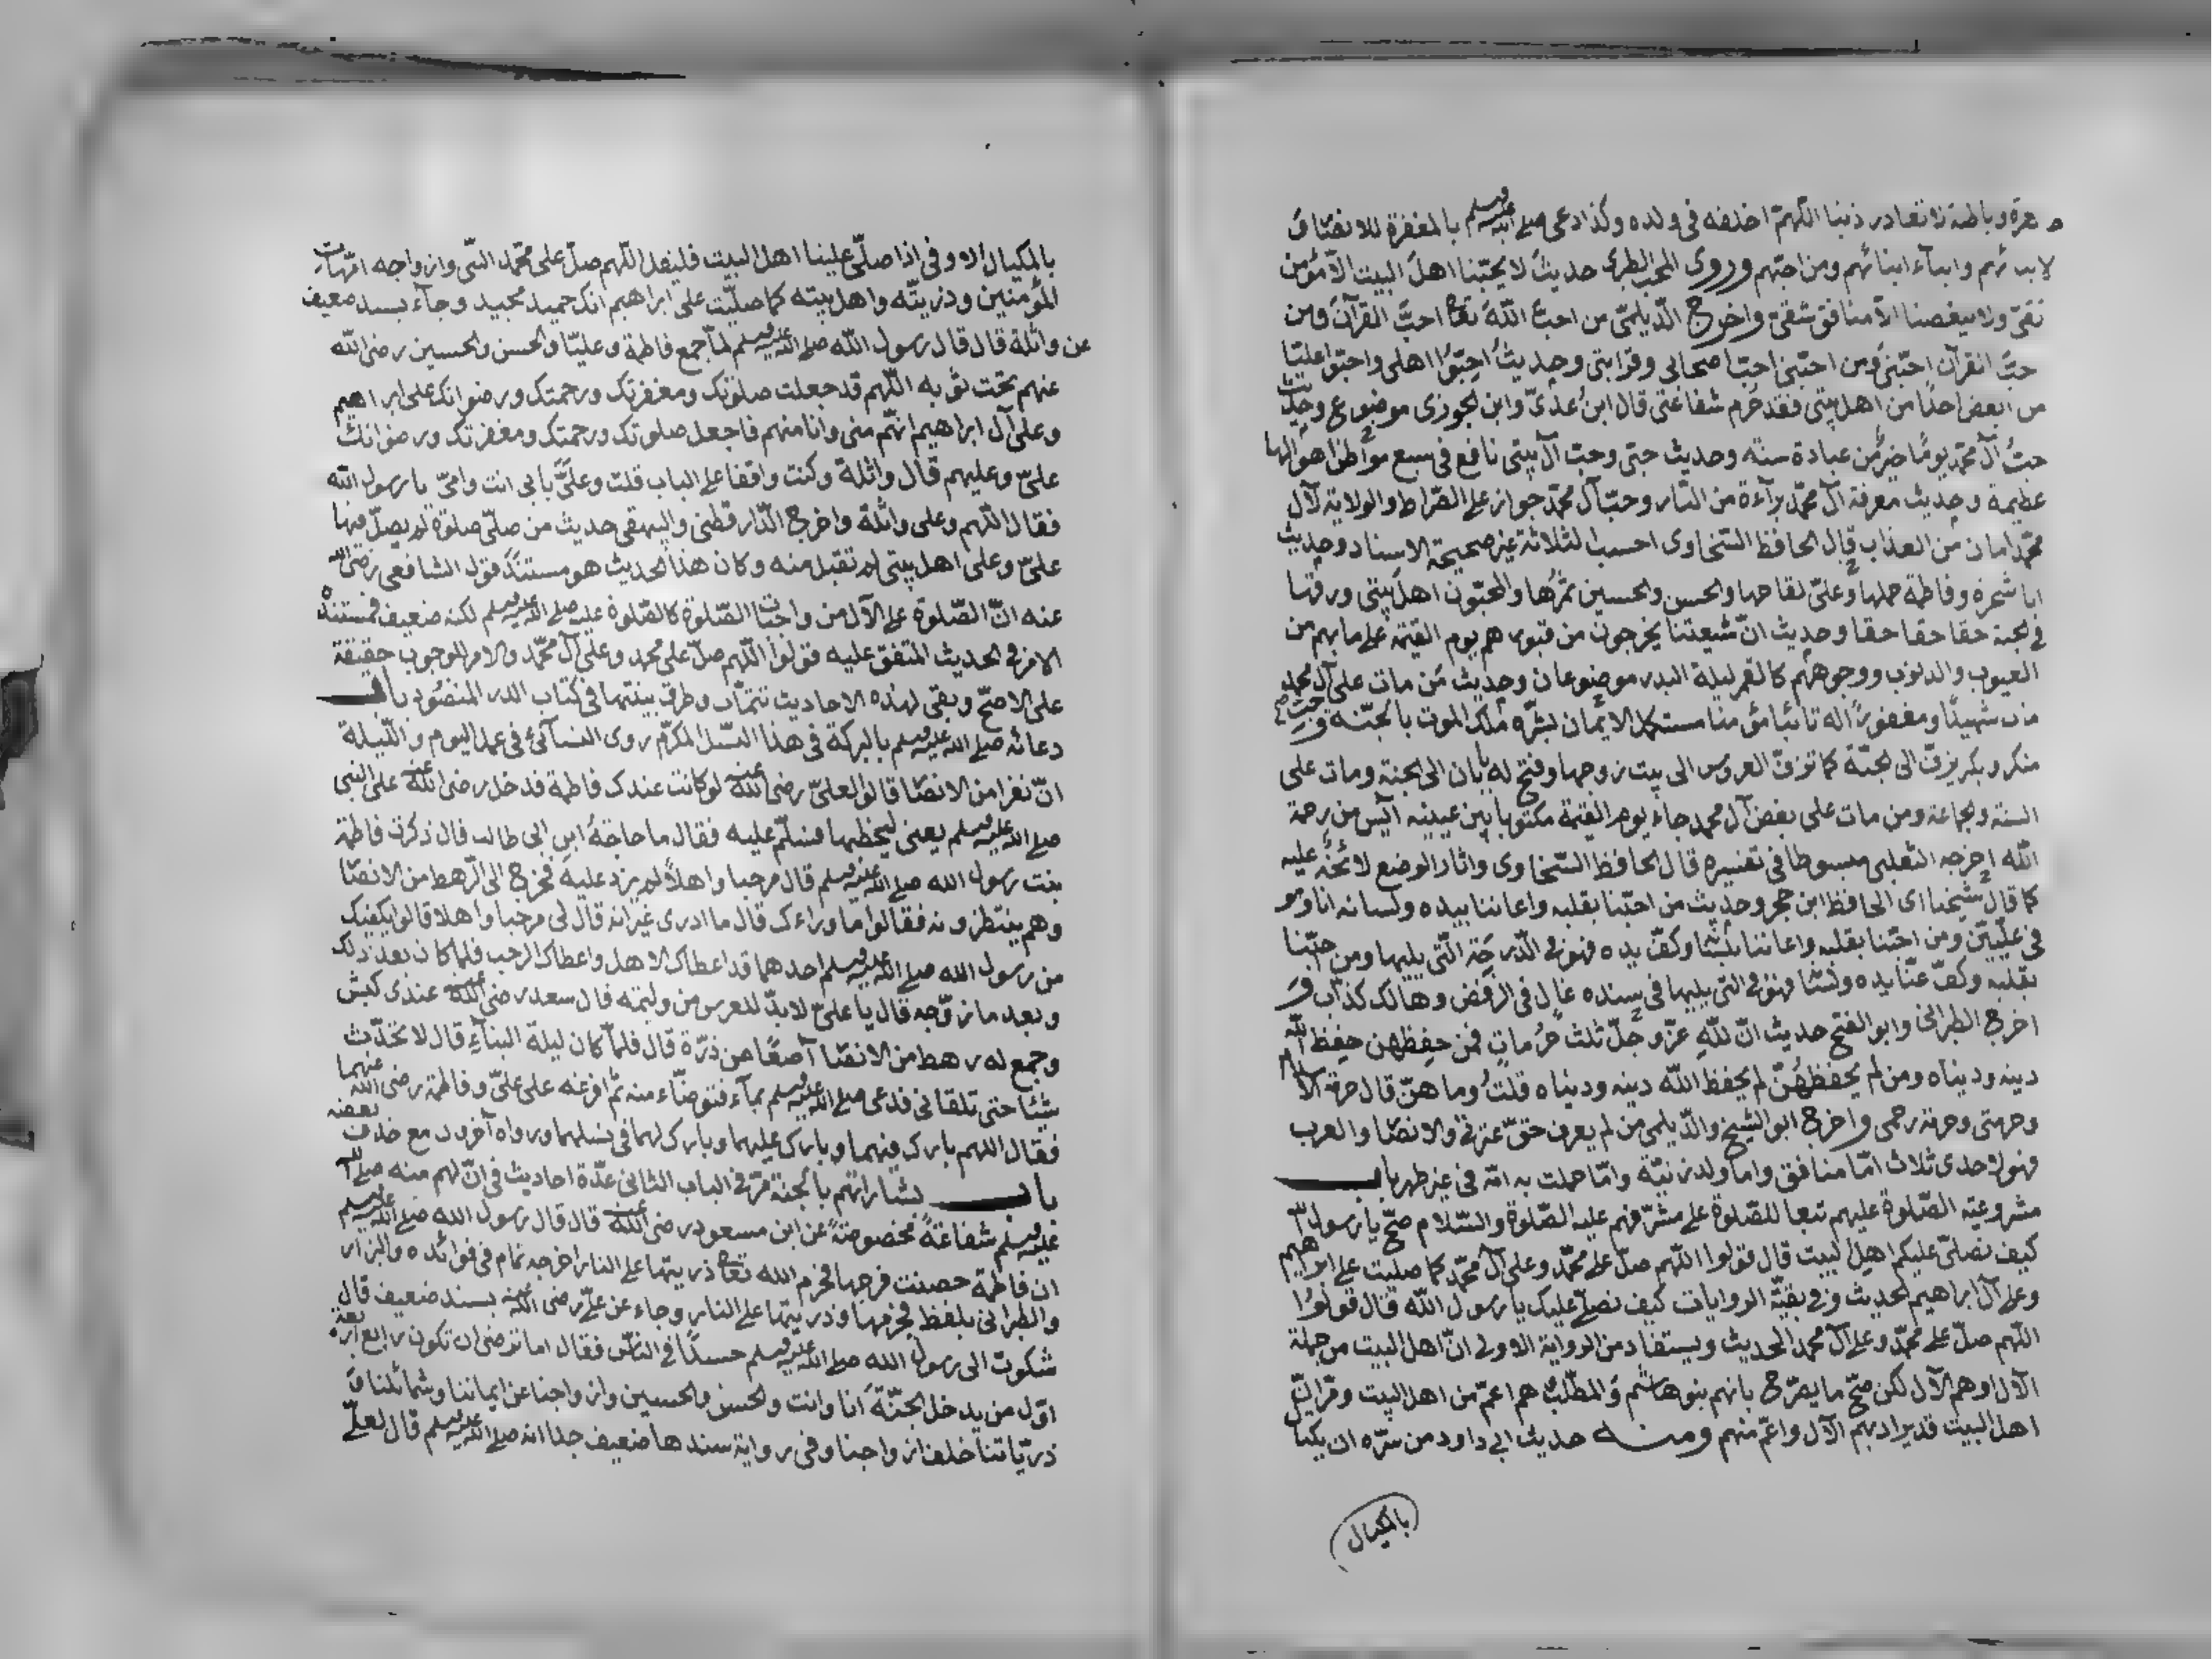 ظاهرة وباطنة لا تغادر ذنبا اللهم اخلفه في ولده وكذا دعى صلى الله عليه وسلم بالمغفرة للانصار و
لابنائهم وابناء ابنائهم ومن احبهم وروى المحب الطبرى حديث لا يحبّنا اهل البيت الّا مؤمن
تقىّ ولا يبغضنا الّا منافق شقىّ واخرج الدّيلمىّ من احبّ اللّه تعالى احبّ القرآن ومن
حبّ القرآن احبّنى ومن احبّنى احبّ اصحابى وقرابتى وحديث احبّوا اهلى واحبّوا عليّا
من ابغض احدًا من اهل بيتى فقد حُرم شفاعتى قال ابن عدىّ وابن الجوزى موضوع وحديث
حبّ آل محمّد يومًا خيرٌ من عبادة سنة وحديث حبّى وحبّ آل بيتى نافع فى سبع مواطن اهوالها
عظيمة وحديث معرفة آل محمّد براءة من النّار وحبّ آل محمّد جواز على الصّراط والولاية لآل
محمّد امان من العذاب قال الحافظ السّخاوى احسب الثلاثة غير صحيحة الاسناد وحديث
انا شجرة وفاطمة حملها وعلىّ لقاحها والحسن والحسين ثمرُها والمحبّون اهل بيتى ورقها
فى الجنة حقا حقا حقا وحديث انّ شيعتنا يخرجون من قبورهم يوم القيمة على ما بهم من
العيوب والذنوب ووجوههم كالقمر ليلة البدر موضوعان وحديث من مات على حب آل محمد
مات شهيدًا ومغفورًا له تائبا مؤمنا مستكمل الايمان بشّره ملك الموت بالجنّة و
منكر ونكير يزفّ الى الجنّة كما تزفّ العروس الى بيت زوجها وفتح له بابان الى الجنة ومات على
السنة والجماعة ومن مات على بغض آل محمد جاء يوم القيمة مكتوبا بين عينيه آيس من رحمة
اللّه اخرجه الثعلبى مبسوطا فى تفسيره قال الحافظ السّخاوى واثار الوضع لائحة عليه
كما قال شيخنا اى الحافظ ابن حجر وحديث من احبّنا بقلبه واعاننا بيده ولسانه انا وهو
فى علّيين ومن احبّنا بقلبه واعاننا بلسانه وكفّ يده فهو فى الدّرجة الّتى يليها ومن احبّنا
بقلبه وكفّ عنّا يده ولسانه فهو فى التى يليها فى سنده غال فى الرفض وهالك كذّاب و
اخرج الطبرانى وابو الفتح حديث انّ للّه عزّ وجلّ ثلث حُرُمات فمن حفظهن حفظ اللّه
دينه ودنياه ومن لم يحفظهُنّ لم يحفظ اللّه دينه ودنياه قلتُ وما هنّ قال حرمة الاسلام
وحرمتى وحرمة رحمى واخرج ابو الشيخ والدّيلمى من لم يعرف حقّ عترتى والانصار والعرب
فهو لاحدى ثلاث امّا منافق واما ولد زنيّة وامّا حملت به امّه فى غير طهر باب
مشروعية الصّلوة عليهم تبعا للصّلوة على مشرّفهم عليه الصّلوة والسّلام صحّ يا رسول اللّه
كيف نصلّى عليكم اهل البيت قال قولوا اللّهم صلّ على محمّد وعلى آل محمّد كما صليت على ابراهيم
وعلى آل ابراهيم الحديث وفى بقيّة الروايات كيف نصلّى عليك يا رسول اللّه قال قولوا
اللّهم صلّ على محمّد وعلى آل محمد الحديث ويستفاد من الرواية الاولى انّ اهل البيت من جملة
الآل اوهم الآل لكن صحّ ما يصرّح بانهم بنو هاشم والمطّلب هم اعمّ من اهل البيت ومرّ انّ
اهل البيت قد يراد بهم الآل واعمّ منهم ومنه حديث ابى داود من سرّه ان يكتال
بالمكيال
بالمكيال الاوفى اذا صلّى علينا اهل البيت فليقل اللّهم صلّ على محمّد النّبى وازواجه امّهات
المؤمنين وذريّته واهل بيته كما صليّت على ابراهيم انك حميد مجيد وجاء بسند ضعيف
عن واثلة قال قال رسول اللّه صلى الله عليه وسلم لمّا جمع فاطمة وعليّا والحسن والحسين رضى اللّه
عنهم تحت ثوبه اللّهم قد جعلت صلوتك ومغفرتك ورحمتك ورضوانك على ابراهيم
وعلى آل ابراهيم انّهم منى وانا منهم فاجعل صلوتك ورحمتك ومغفرتك ورضوانك
علىّ وعليهم قال واثلة وكنت واقفا على الباب قلت وعلىَّ بابى انت وامّى يا رسول اللّه
فقال اللّهم وعلى واثلة واخرج الدّارقطنى والبيهقى حديث من صلّى صلوة لم يصلّ فيها
علىّ وعلى اهل بيتى لم تقبل منه وكان هذا الحديث هو مستند قول الشافعى رضى اللّه
عنه انّ الصّلوة على الآل من واجبات الصّلوة كالصّلوة عليه صلى الله عليه وسلم لكنه ضعيف فمستنده
الامر فى الحديث المتفق عليه قولوا اللّهم صلّ على محمد وعلى آل محمّد والامر للوجوب حقيقة
على الاصحّ وبقى لهذه الاحاديث تتمّات وطرق بينتها فى كتاب الدر المنضود باب
دعائه صلى الله عليه وسلم بالبركة فى هذا النّسل المكرّم روى النسآئى فى عمل اليوم والليلة
انّ نفرا من الانصار قالوا لعلىّ رضى الله عنه لو كانت عندك فاطمة فدخل رضى الله عنه على النبى
صلى الله عليه وسلم يعنى ليخطبها فسلّم عليه فقال ما حاجة ابن ابى طالب قال ذكرت فاطمة
بنت رسول الله صلى الله عليه وسلم قال مرحبا واهلا لم يزد عليه فخرج الى الرّهط من الانصار
وهم ينتظرونه فقالوا ما وراءك قال ما ادرى غير انه قال لى مرحبا واهلا قالوا يكفيك
من رسول الله صلى الله عليه وسلم احدهما قد اعطاك الاهل واعطاك الرحب فلما كان بعد ذلك
وبعد ما زوّجه قال يا علىّ لا بدّ للعرس من وليمه قال سعد رضى الله عنه عندى كبش
وجمع له رهط من الانصار آصعًا من ذرّة قال فلمّا كان ليلة البنآء قال لا تحدّث
شيئا حتى تلقانى فدعى صلى الله عليه وسلم بمآء فتوضّاء منه ثمّ افرغه على علىّ وفاطمة رضى الله عنهما
فقال اللهم بارك فيهما وبارك عليهما وبارك لهما فى نسلهما ورواه آخرون مع حذف بعضه
باب بشاراتهم بالجنة مرّ فى الباب الثانى عدّة احاديث فى انّ لهم منه صلى الله
عليه وسلم شفاعةً مخصوصةً عن ابن مسعود رضى الله عنه قال قال رسول الله صلى الله عليه وسلم
ان فاطمة حصنت فرجها فحرم الله تعالى ذريتها على النار اخرجه تمام فى فوائده والبزار
والطبرانى بلفظ فحرمها وذريتها على النار وجاء عن علىّ رضى الله عنه بسند ضعيف قال
شكوت الى رسول الله صلى الله عليه وسلم حسدًا فى النّاس فقال اما ترضى ان تكون رابع اربعة
اوّل من يدخل الجنّة انا وانت والحسن والحسين وازواجنا عن ايماننا وشمائلنا و
ذريّاتنا خلف ازواجنا وفى رواية سندها ضعيف جدا انه صلى الله عليه وسلم قال لعلىّ